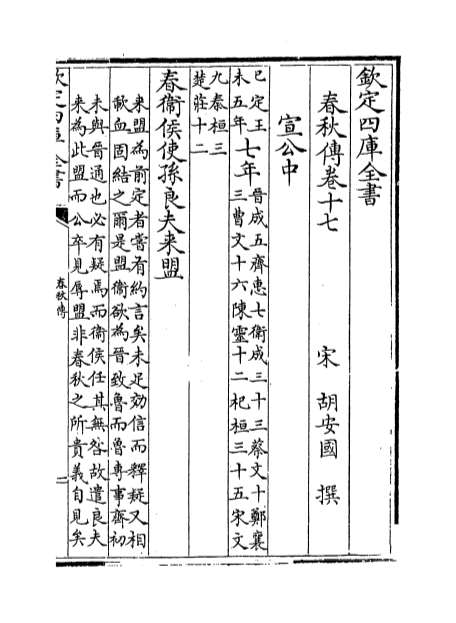 欽定四庫全書
春秋傳卷十七
宋 胡安國 撰
宣公中
己定王
未五年
七年
晉成五齊惠七衛成三十三蔡文十鄭襄
三曹文十六陳靈十二杞桓三十五宋文
九秦桓三
楚莊十二
春衞侯使孫良夫来盟
来盟為前定者嘗有約言矣未足効信而釋疑又相
歃血固結之爾是盟衞欲為晉致魯而魯専事齊初
未與晉通也必有疑焉而衞侯任其無咎故遣良夫
来為此盟而公卒見辱盟非春秋之所貴義自見矣
欽定四庫全書
春秋傳